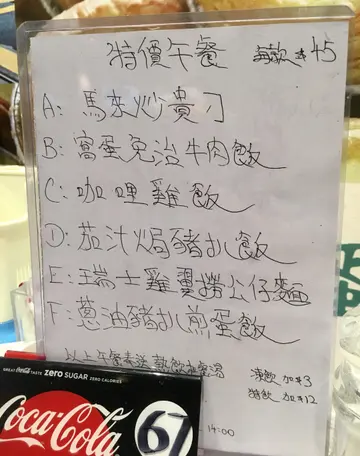 特價午餐 每款 $45
A: 馬來炒貴刁
B: 窩蛋免治牛肉飯
C: 咖喱雞飯
D: 茄汁焗豬扒飯
E: 瑞士雞翼撈公仔麵
F: 蔥油豬扒煎蛋飯
以上午餐奉送熱飲和餐湯
凍飲 加$3
特飲 加$12
14:00
GREAT Coca-Cola TASTE ZERO SUGAR ZERO CALORIES
Coca-Cola
67